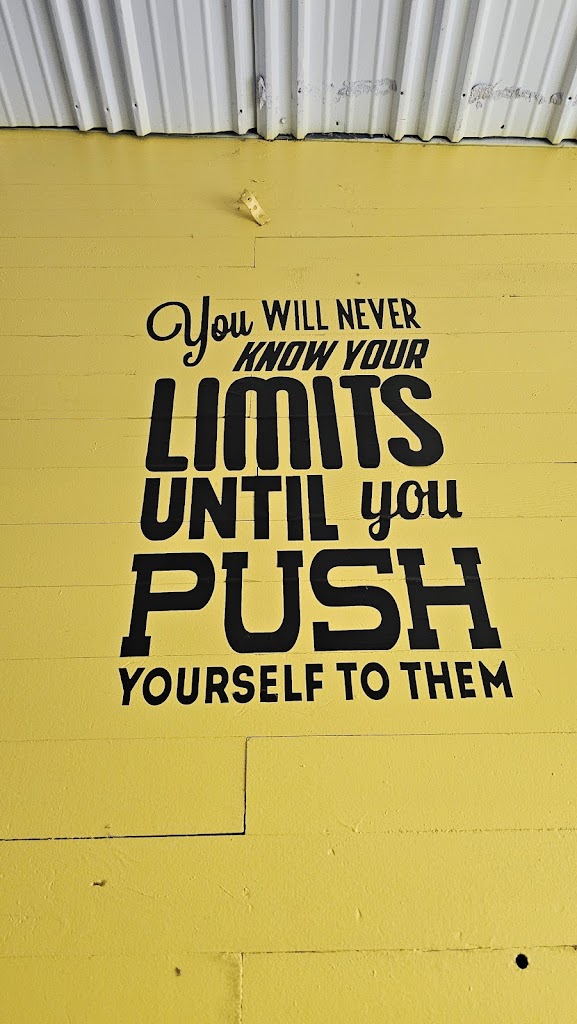 You WILL NEVER
KNOW YOUR
LIMITS
UNTIL you
PUSH
YOURSELF TO THEM